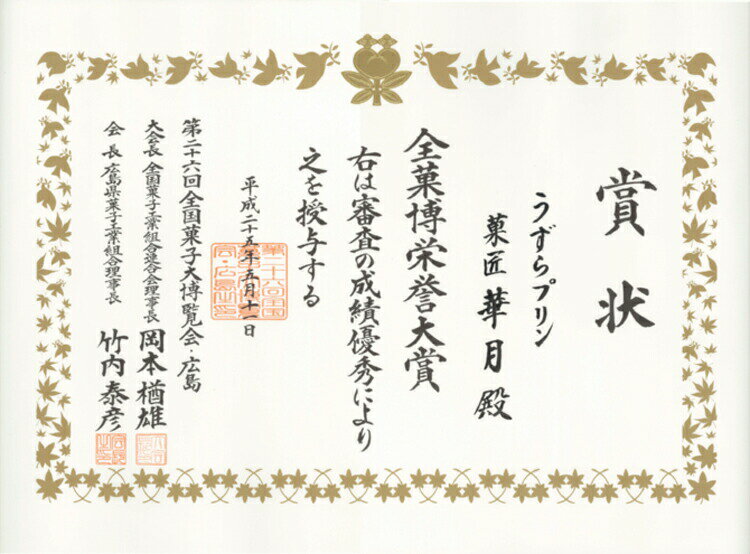 賞状
うずらプリン
菓匠 華月 殿
全菓博栄誉大賞
右は審査の成績優秀により
之を授与する
平成二十五年五月十一日
第二十六回全国菓子大博覧会・広島
大会長 全国菓子工業組合連合会理事長 岡本楢雄
会長 広島県菓子工業組合理事長 竹内泰彦